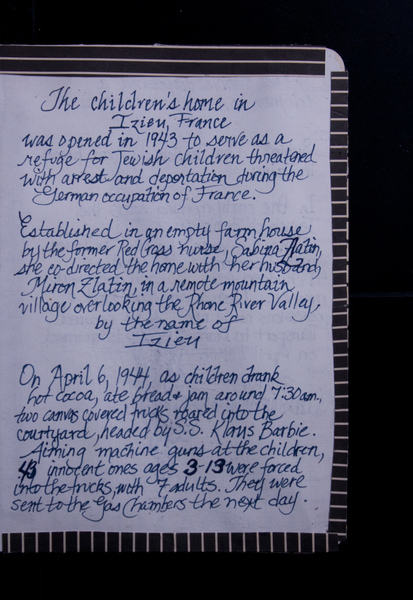 The children's home in
Izieu, France
was opened in 1943 to serve as a
refuge for Jewish children threatened
with arrest and deportation during the
German occupation of France.
Established in an empty farm house
by the former Red Cross nurse, Sabina Zlatin,
she co-directed the home with her husband,
Miron Zlatin, in a remote mountain
village overlooking the Rhone River Valley,
by the name of
Izieu
On April 6, 1944, as children drank
hot cocoa, ate bread & jam around 7:30am.,
two canvas covered trucks roared into the
courtyard, headed by S.S. Klaus Barbie.
Aiming machine guns at the children,
43 innocent ones ages 3-13 were forced
into the trucks, with 7 adults. They were
sent to the Gas Chambers the next day.